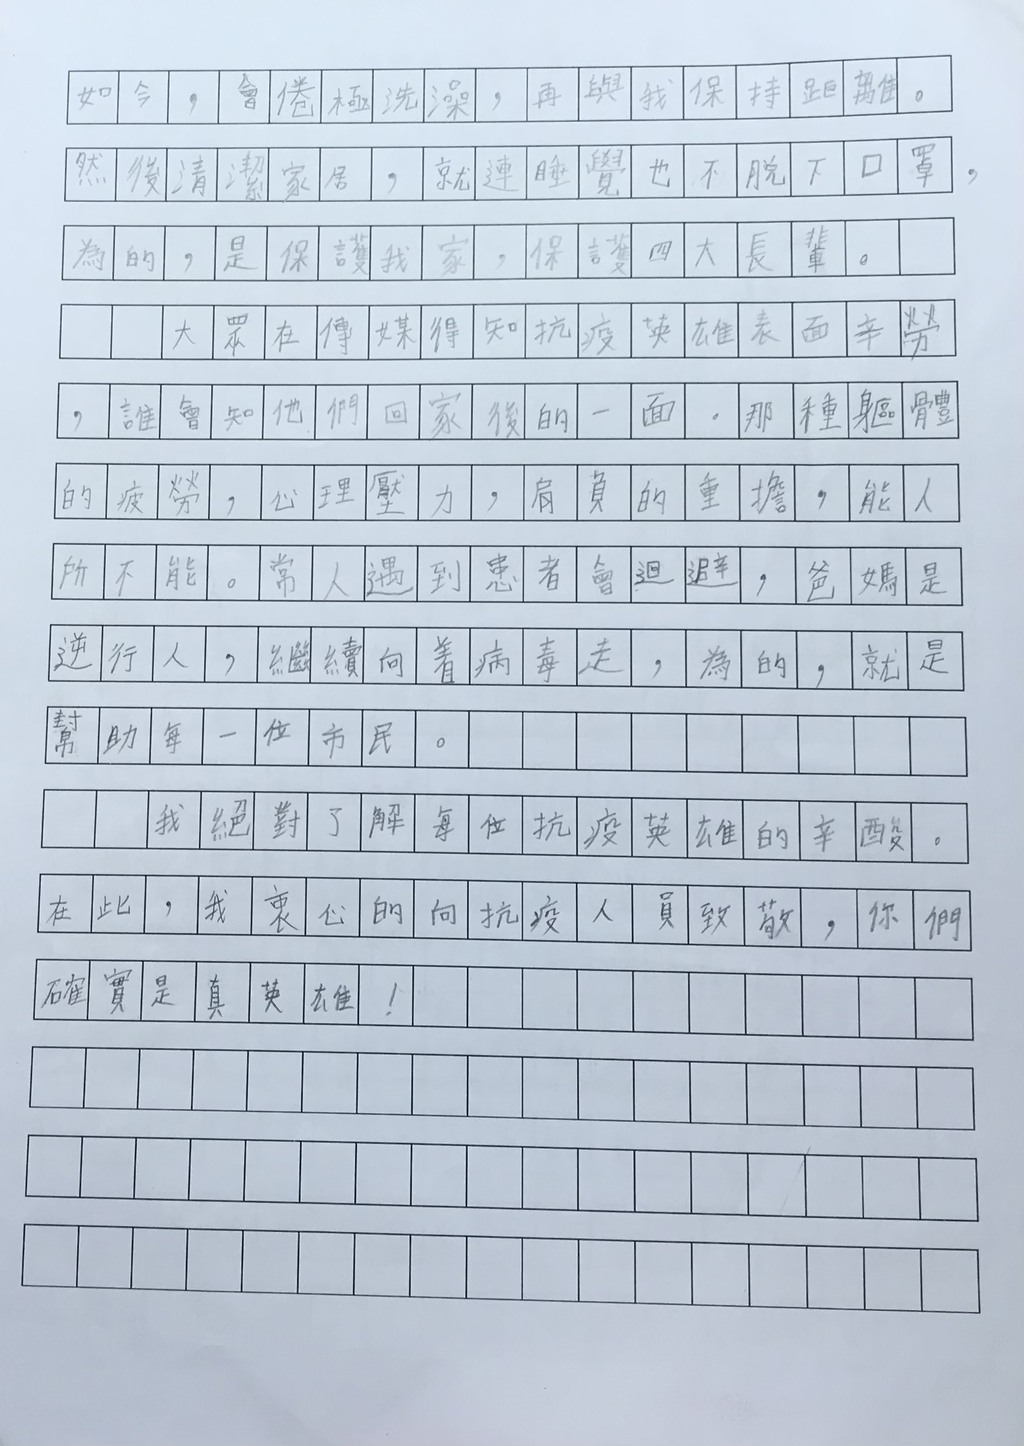 如今，會倦極洗澡，再與我保持距離。
然後清潔家居，就連睡覺也不脫下口罩，
為的，是保護我家，保護四大長輩。
大眾在傳媒得知抗疫英雄表面辛勞
，誰會知他們回家後的一面。那種軀體
的疲勞，心理壓力，肩負的重擔，能人
所不能。常人遇到患者會迴避，爸媽是
逆行人，繼續向着病毒走，為的，就是
幫助每一位市民。
我絕對了解每位抗疫英雄的辛酸。
在此，我衷心的向抗疫人員致敬，你們
確實是真英雄！